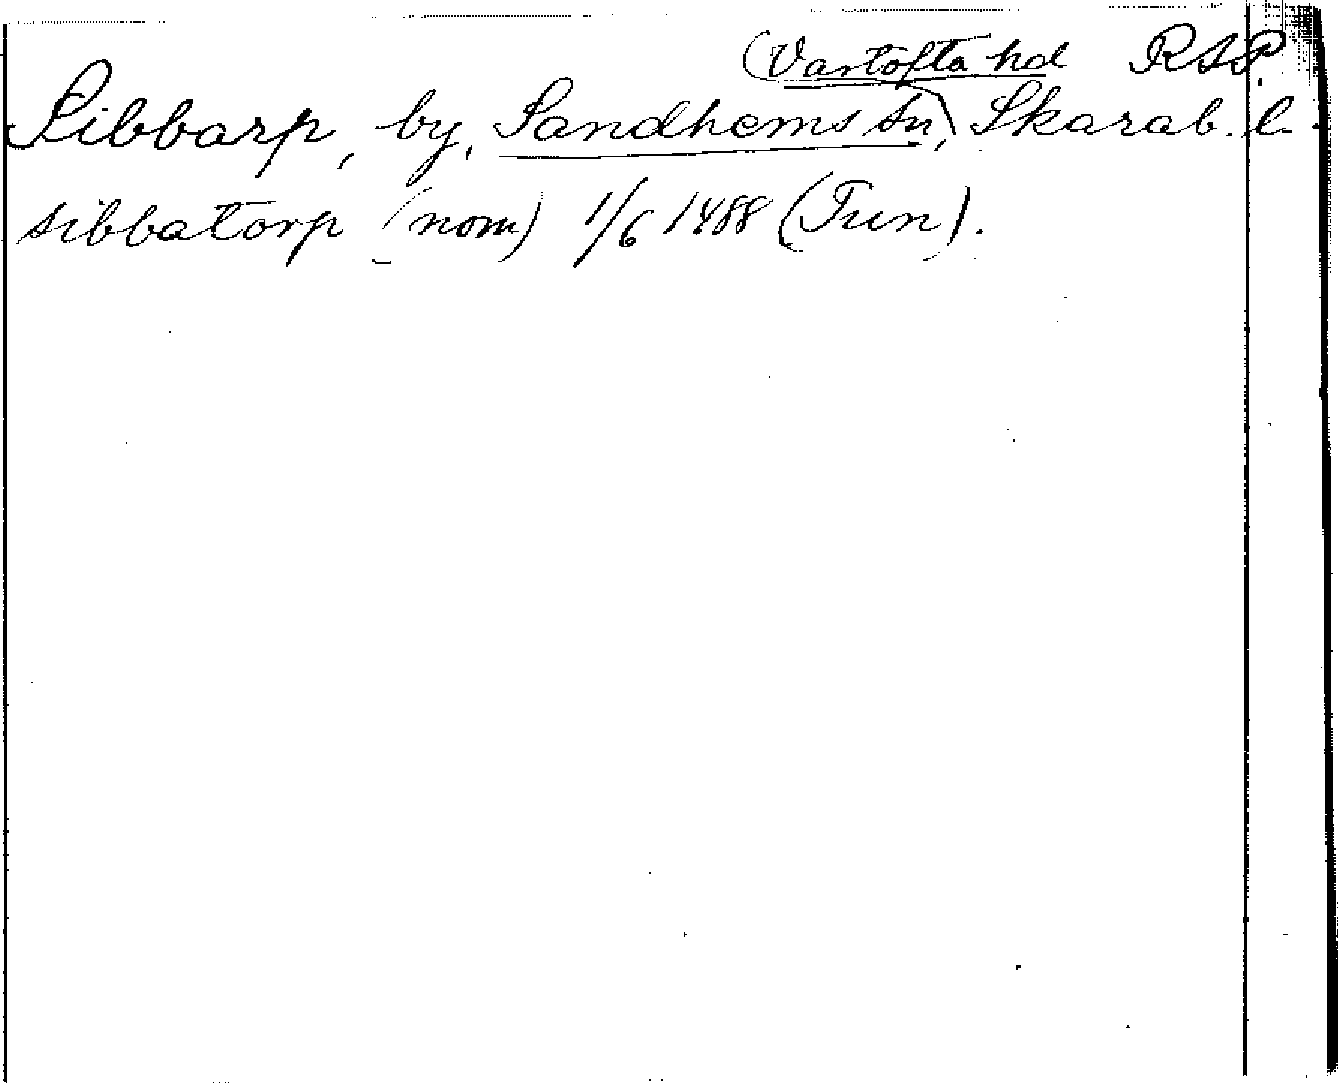 (Vartofta hd RAP.
Sibbarp, by, Sandhems sn), Skarab. l.
sibbatorp (nom) 1/6 1488 (Tun).